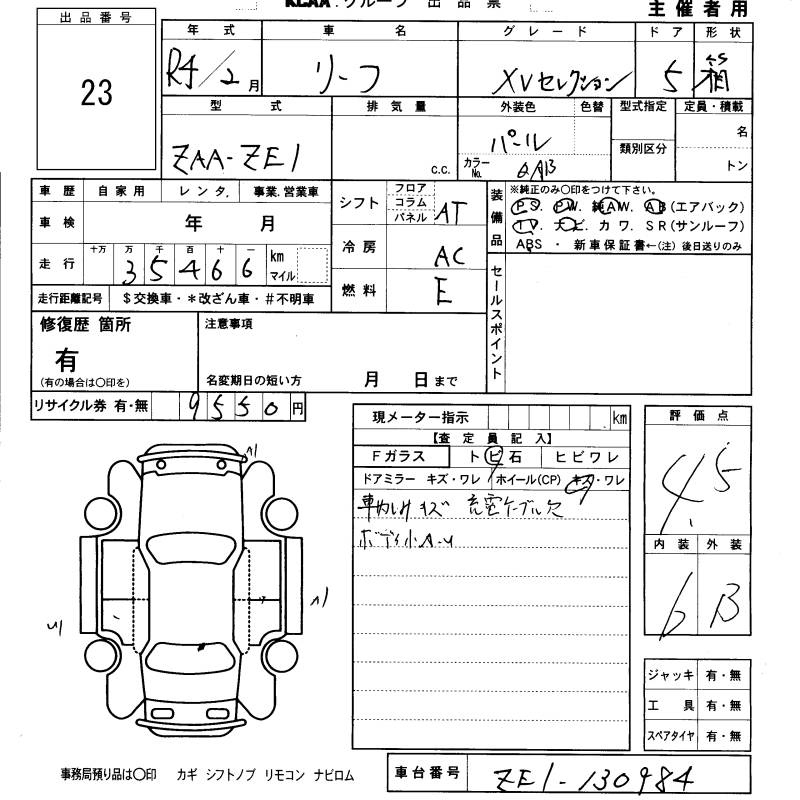 KCAA.グループ 出品票
主催者用
出品番号 23
年式 車名 グレード ドア 形状
R4/2月 リーフ XVセレクション 5 箱
型式 排気量 外装色 色替 型式指定 定員・積載
ZAA-ZE1 C.C. パール 類別区分 名
カラーNo. QAB トン
車歴 自家用 レンタ. 事業.営業車
車検 年 月
走行 十万 万 千 百 十 一 km マイル
3 5 4 6 6
走行距離記号 $交換車・*改ざん車・#不明車
シフト フロア コラム パネル AT
冷房 AC
燃料 E
装備品 ※純正のみ〇印をつけて下さい。
PS. PW. 純AW. AB(エアバック)
TV. ナビ. カワ. SR(サンルーフ)
ABS ・ 新車保証書←(注) 後日送りのみ
セールスポイント
修復歴 箇所
有
(有の場合は〇印を)
注意事項
名変期日の短い方 月 日まで
リサイクル券 有・無 9550円
現メーター指示 km
【査定員記入】
Fガラス トビ石 ヒビワレ
ドアミラー キズ・ワレ ホイール(CP) キズ・ワレ
キズ 充電ケーブル欠
ボディ小A-U
評価点
4.5
内装 外装
6 B
ジャッキ 有・無
工具 有・無
スペアタイヤ 有・無
事務局預り品は〇印 カギ シフトノブ リモコン ナビロム
車台番号 ZE1-130984